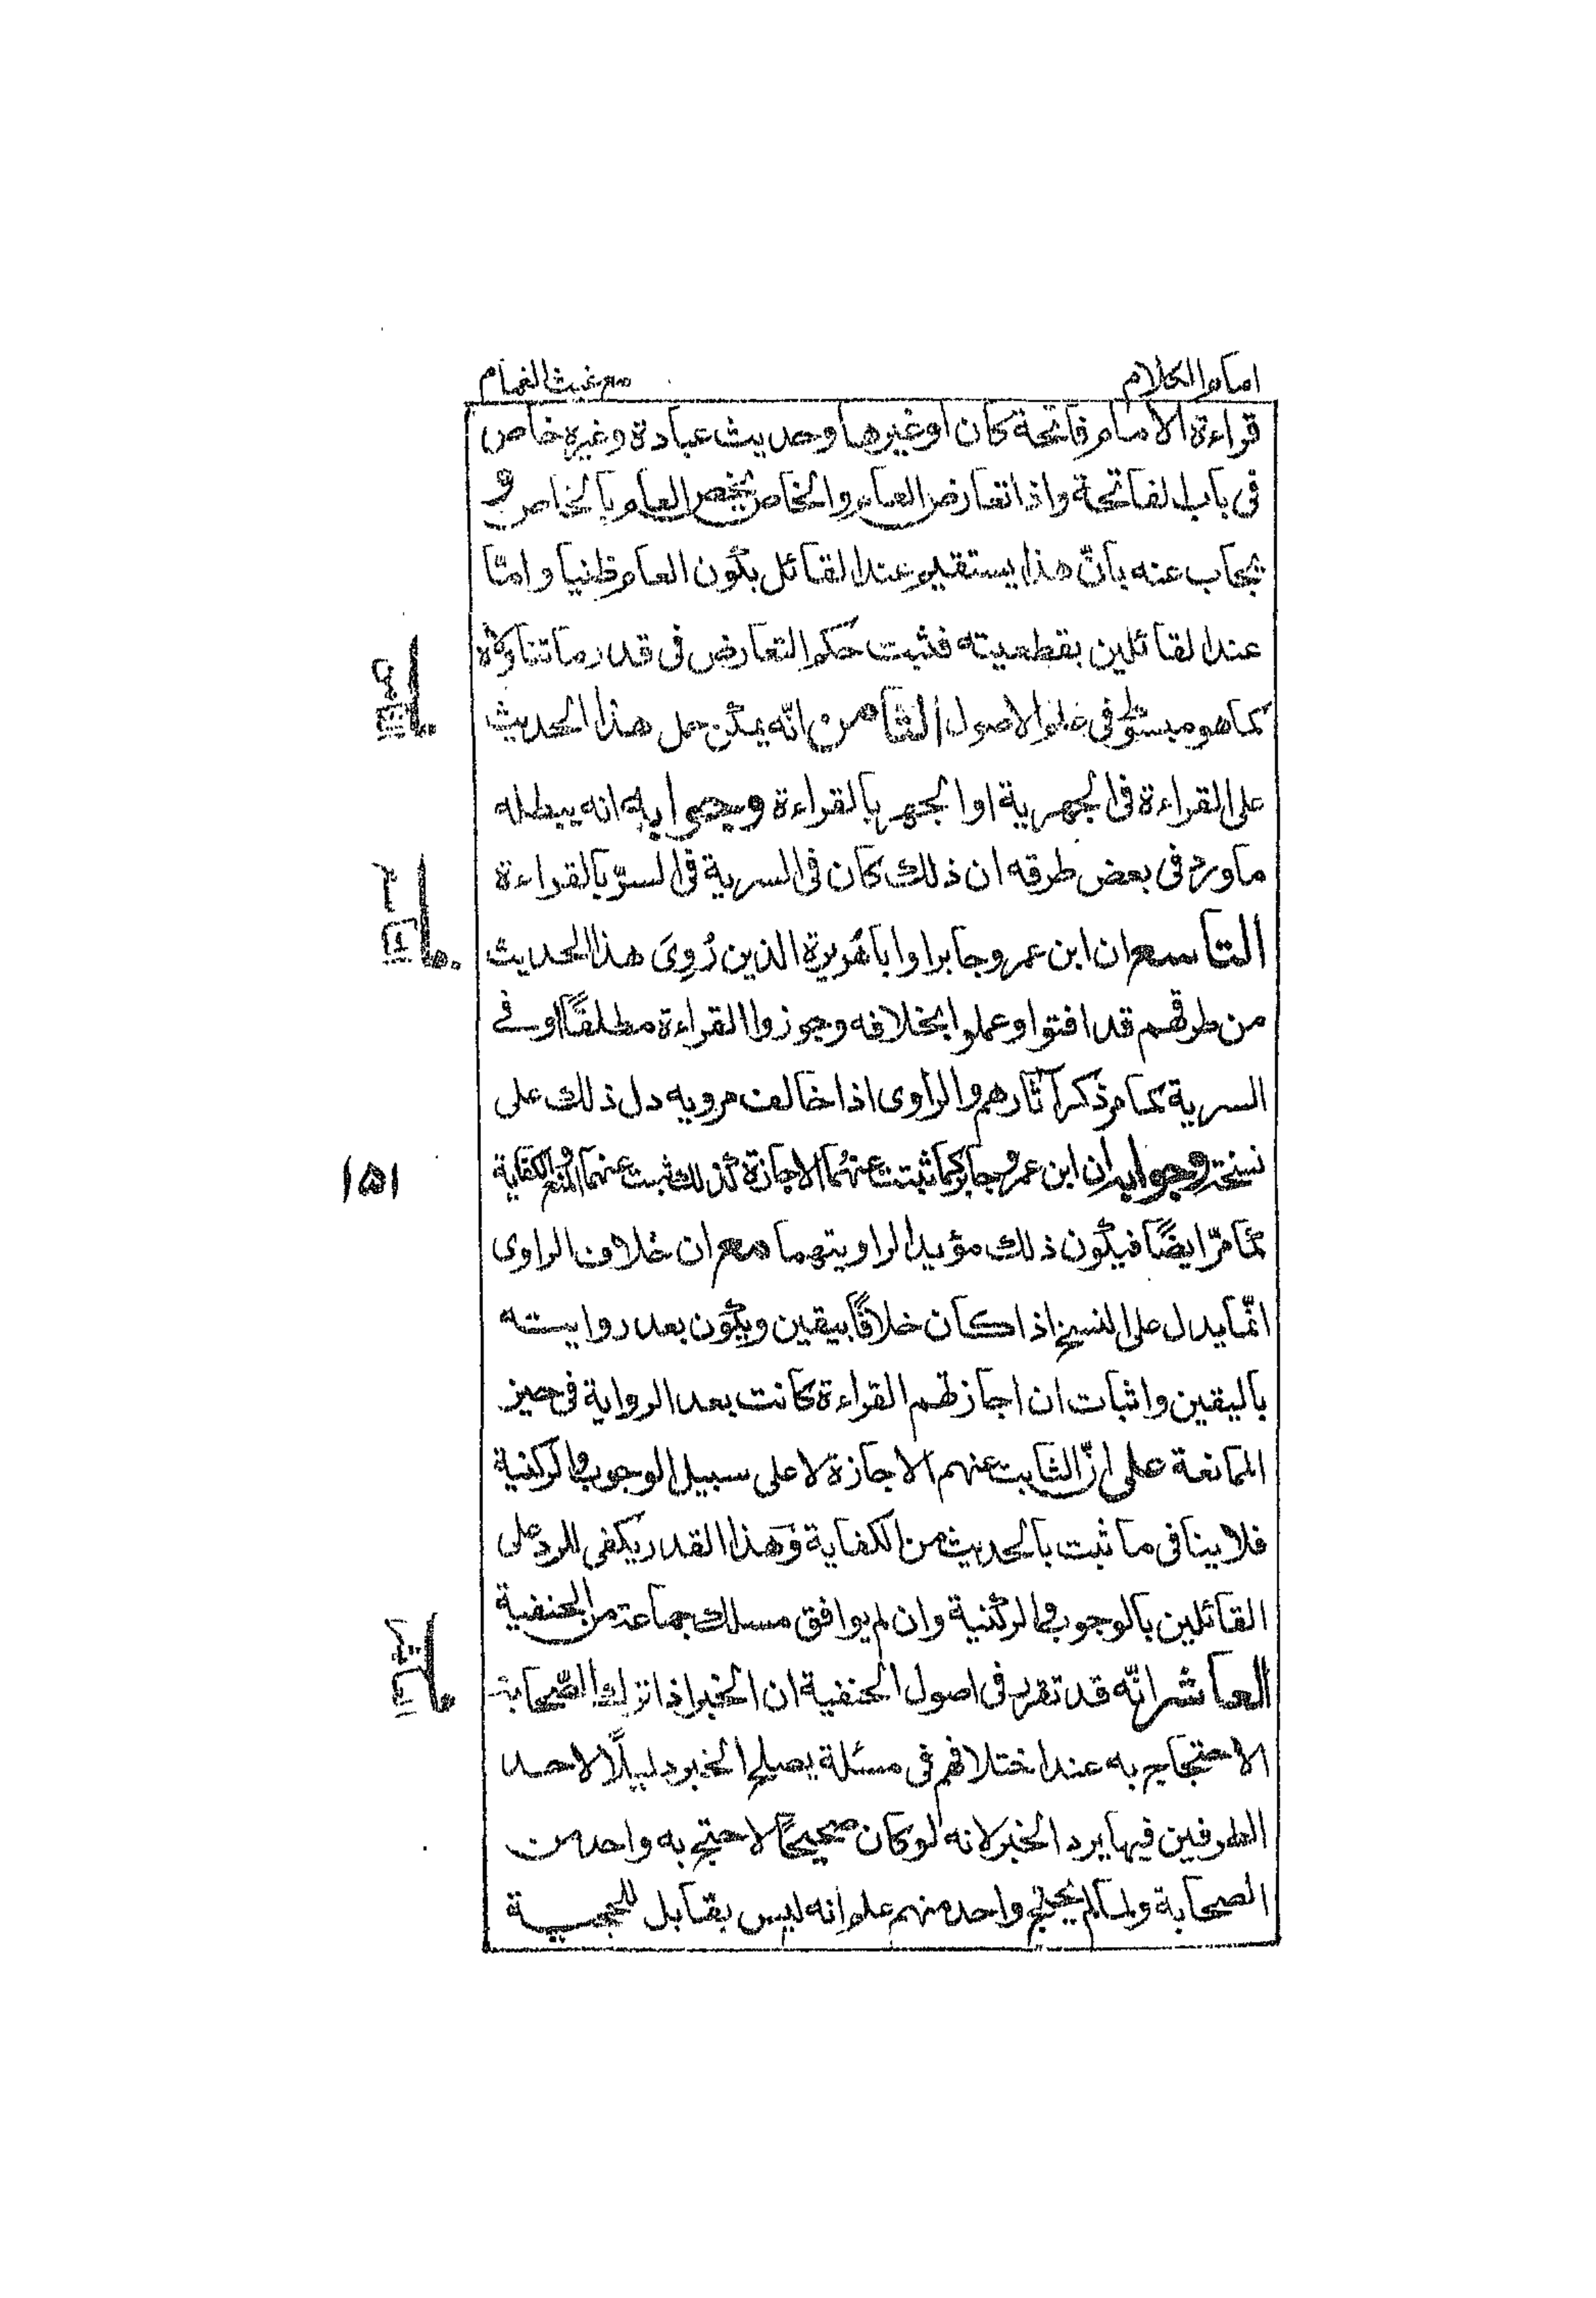 امام الكلام
مع غيث الغمام
قراءة الامام فاتحة كان اوغيرها وحديث عبادة وغيره خاص
فى باب الفاتحة واذا تعارض العام والخاص يخص العام بالخاص و
يجاب عنه بانّ هذا يستقيم عند القائل بكون العام ظنيا وامّا
عند القائلين بقطعيته فثبت حكم التعارض فى قدر ما تناولاه
كما هو مبسوط فى علم الاصول الثامن انّه يمكن حمل هذا الحديث
على القراءة فى الجهرية او الجهر بالقراءة وجوابه انه يبطله
ما ورد فى بعض طرقه ان ذلك كان فى السرية فى السرّ بالقراءة
التاسع ان ابن عمر وجابرا وابا هُريرة الذين رُوِىَ هذا الحديث
من طرقهم قد افتوا وعملوا بخلافه وجوزوا القراءة مطلقًا او فى
السرية كما مر ذكر آثارهم والراوى اذا خالف مرويه دل ذلك على
نسخه وجوابه ان ابن عمر وجابر كما ثبتت عنهُما الاجازة كذلك ثبت عنهما المنع والكفاية
كما مرّ ايضًا فيكون ذلك مؤيدا لراويتهما مع ان خلاف الراوى
انّما يدل على النسخ اذا كان خلافًا بيقين ويكون بعد روايته
باليقين واثبات ان اجازتهم القراءة كانت بعد الرواية فى حيز
الممانعة على انّ الثابت عنهم الاجازة لا على سبيل الوجوب والركنية
فلا ينافى ما ثبت بالحديث من الكفاية وهذا القدر يكفى للرد على
القائلين بالوجوب والركنية وان لم يوافق مسلك جماعة من الحنفية
العاشر انّه قد تقرر فى اصول الحنفية ان الخبر اذا ترك الصّحابة
الاحتجاج به عند اختلافهم فى مسئلة يصلح الخبر دليلًا لاحد
الطرفين فيها يرد الخبر لانه لو كان صحيحًا لاحتج به واحد من
الصحابة ولما لم يحتج واحد منهم علم انه ليس بقابل للحجية
١٥١